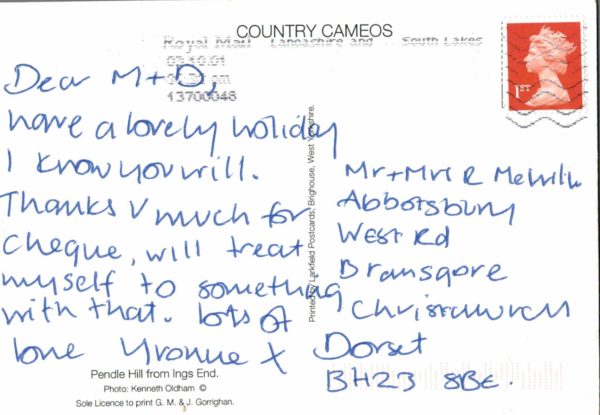 COUNTRY CAMEOS
Royal Mail Lancashire and South Lakes
13700048
Dear M+D,
have a lovely holiday
I know you will.
Thanks V much for
cheque, will treat
myself to something
with that. lots of
love Yvonne X
Pendle Hill from Ings End.
Photo: Kenneth Oldham ©
Sole Licence to print G. M. & J. Gorrighan.
Printed by Larkfield Postcards, Brighouse, West Yorkshire.
1ST
Mr+Mrs R
Abbotsbury
West Rd
Bransgore
Christchurch
Dorset
BH23 8BE.